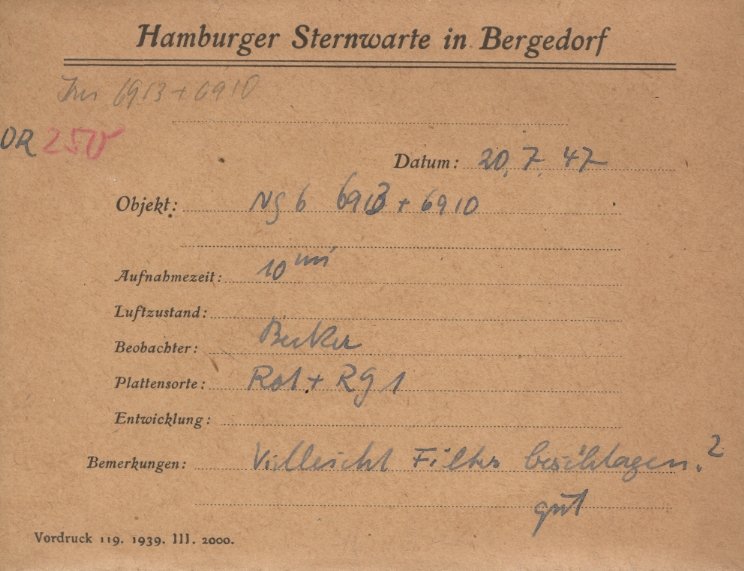 Hamburger Sternwarte in Bergedorf
6913 + 6910
OR 250
Datum: 20. 7. 47
Objekt: Ngc 6913 + 6910
Aufnahmezeit: 10 min
Luftzustand:
Beobachter: Becker
Plattensorte: Rot + RG 1
Entwicklung:
Bemerkungen: Vielleicht Filter beschlagen.?
gut
Vordruck 119. 1939. III. 2000.